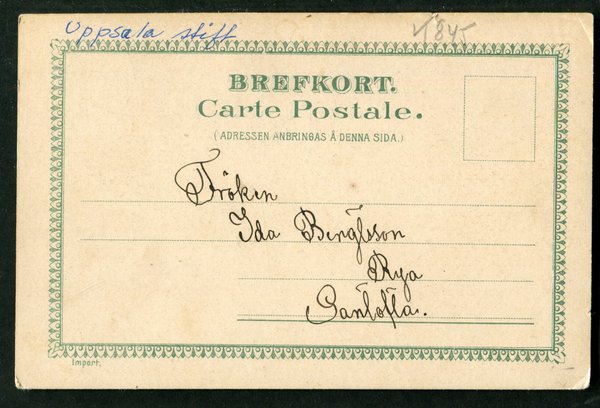 Uppsala stift
1845
BREFKORT.
Carte Postale.
(ADRESSEN ANBRINGAS Å DENNA SIDA.)
Fröken
Ida Bengtsson
Rya
Import.